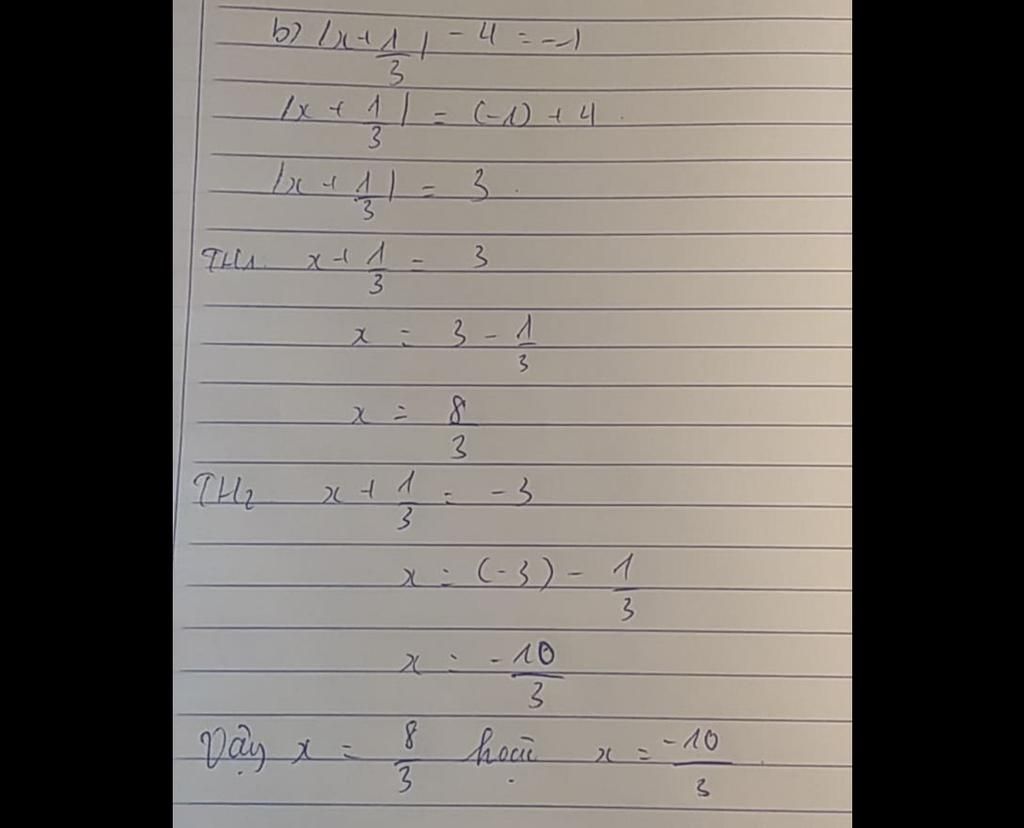 b) |x + 1/3| - 4 = -1
|x + 1/3| = (-1) + 4.
|x + 1/3| = 3.
TH1. x + 1/3 = 3
x = 3 - 1/3
x = 8/3
TH2 x + 1/3 = -3
x = (-3) - 1/3
x = -10/3
Vậy x = 8/3 hoặc x = -10/3.